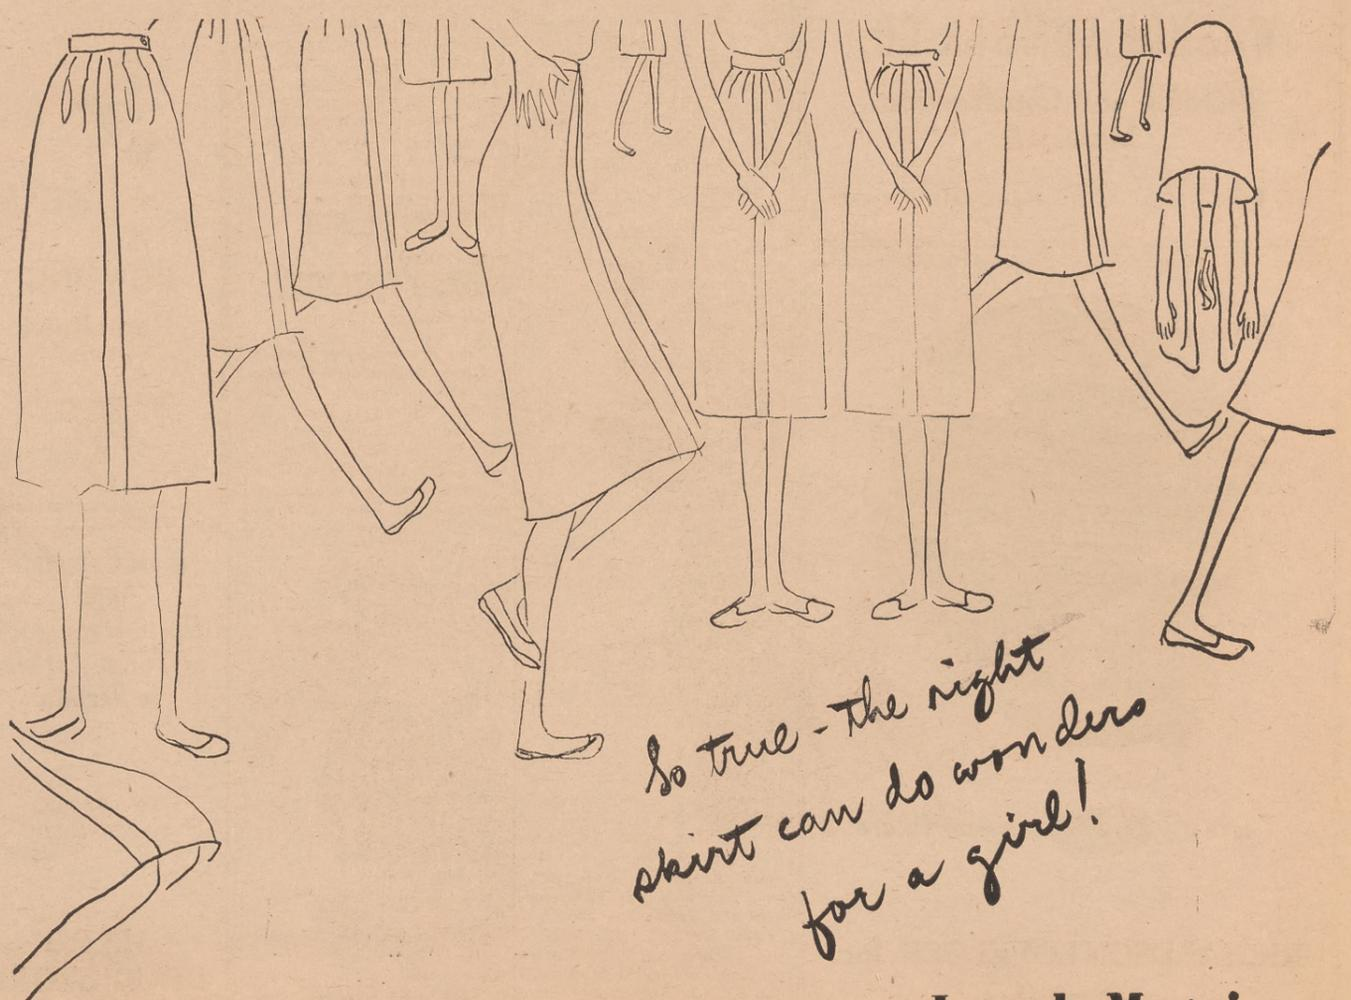 So true - the right
skirt can do wonders
for a girl!